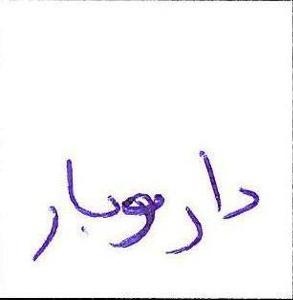 دار وبار